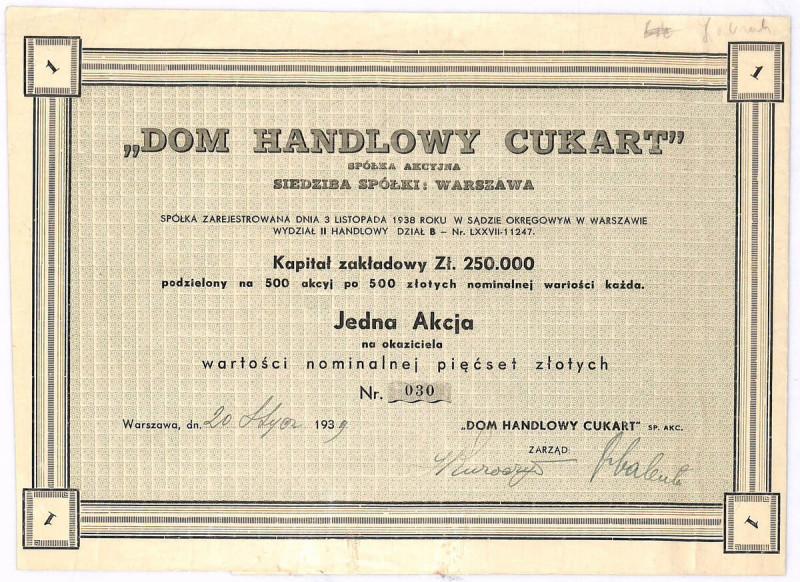 1
1
„DOM HANDLOWY CUKART”
SPÓŁKA AKCYJNA
SIEDZIBA SPÓŁKI: WARSZAWA
SPÓŁKA ZAREJESTROWANA DNIA 3 LISTOPADA 1938 ROKU W SĄDZIE OKRĘGOWYM W WARSZAWIE
WYDZIAŁ II HANDLOWY DZIAŁ B – Nr. LXXVII-11247.
Kapitał zakładowy Zł. 250.000
podzielony na 500 akcyj po 500 złotych nominalnej wartości każda.
Jedna Akcja
na okaziciela
wartości nominalnej pięćset złotych
Nr. 030
Warszawa, dn. 20 stycz 1939
„DOM HANDLOWY CUKART” SP. AKC.
ZARZĄD:
1
1